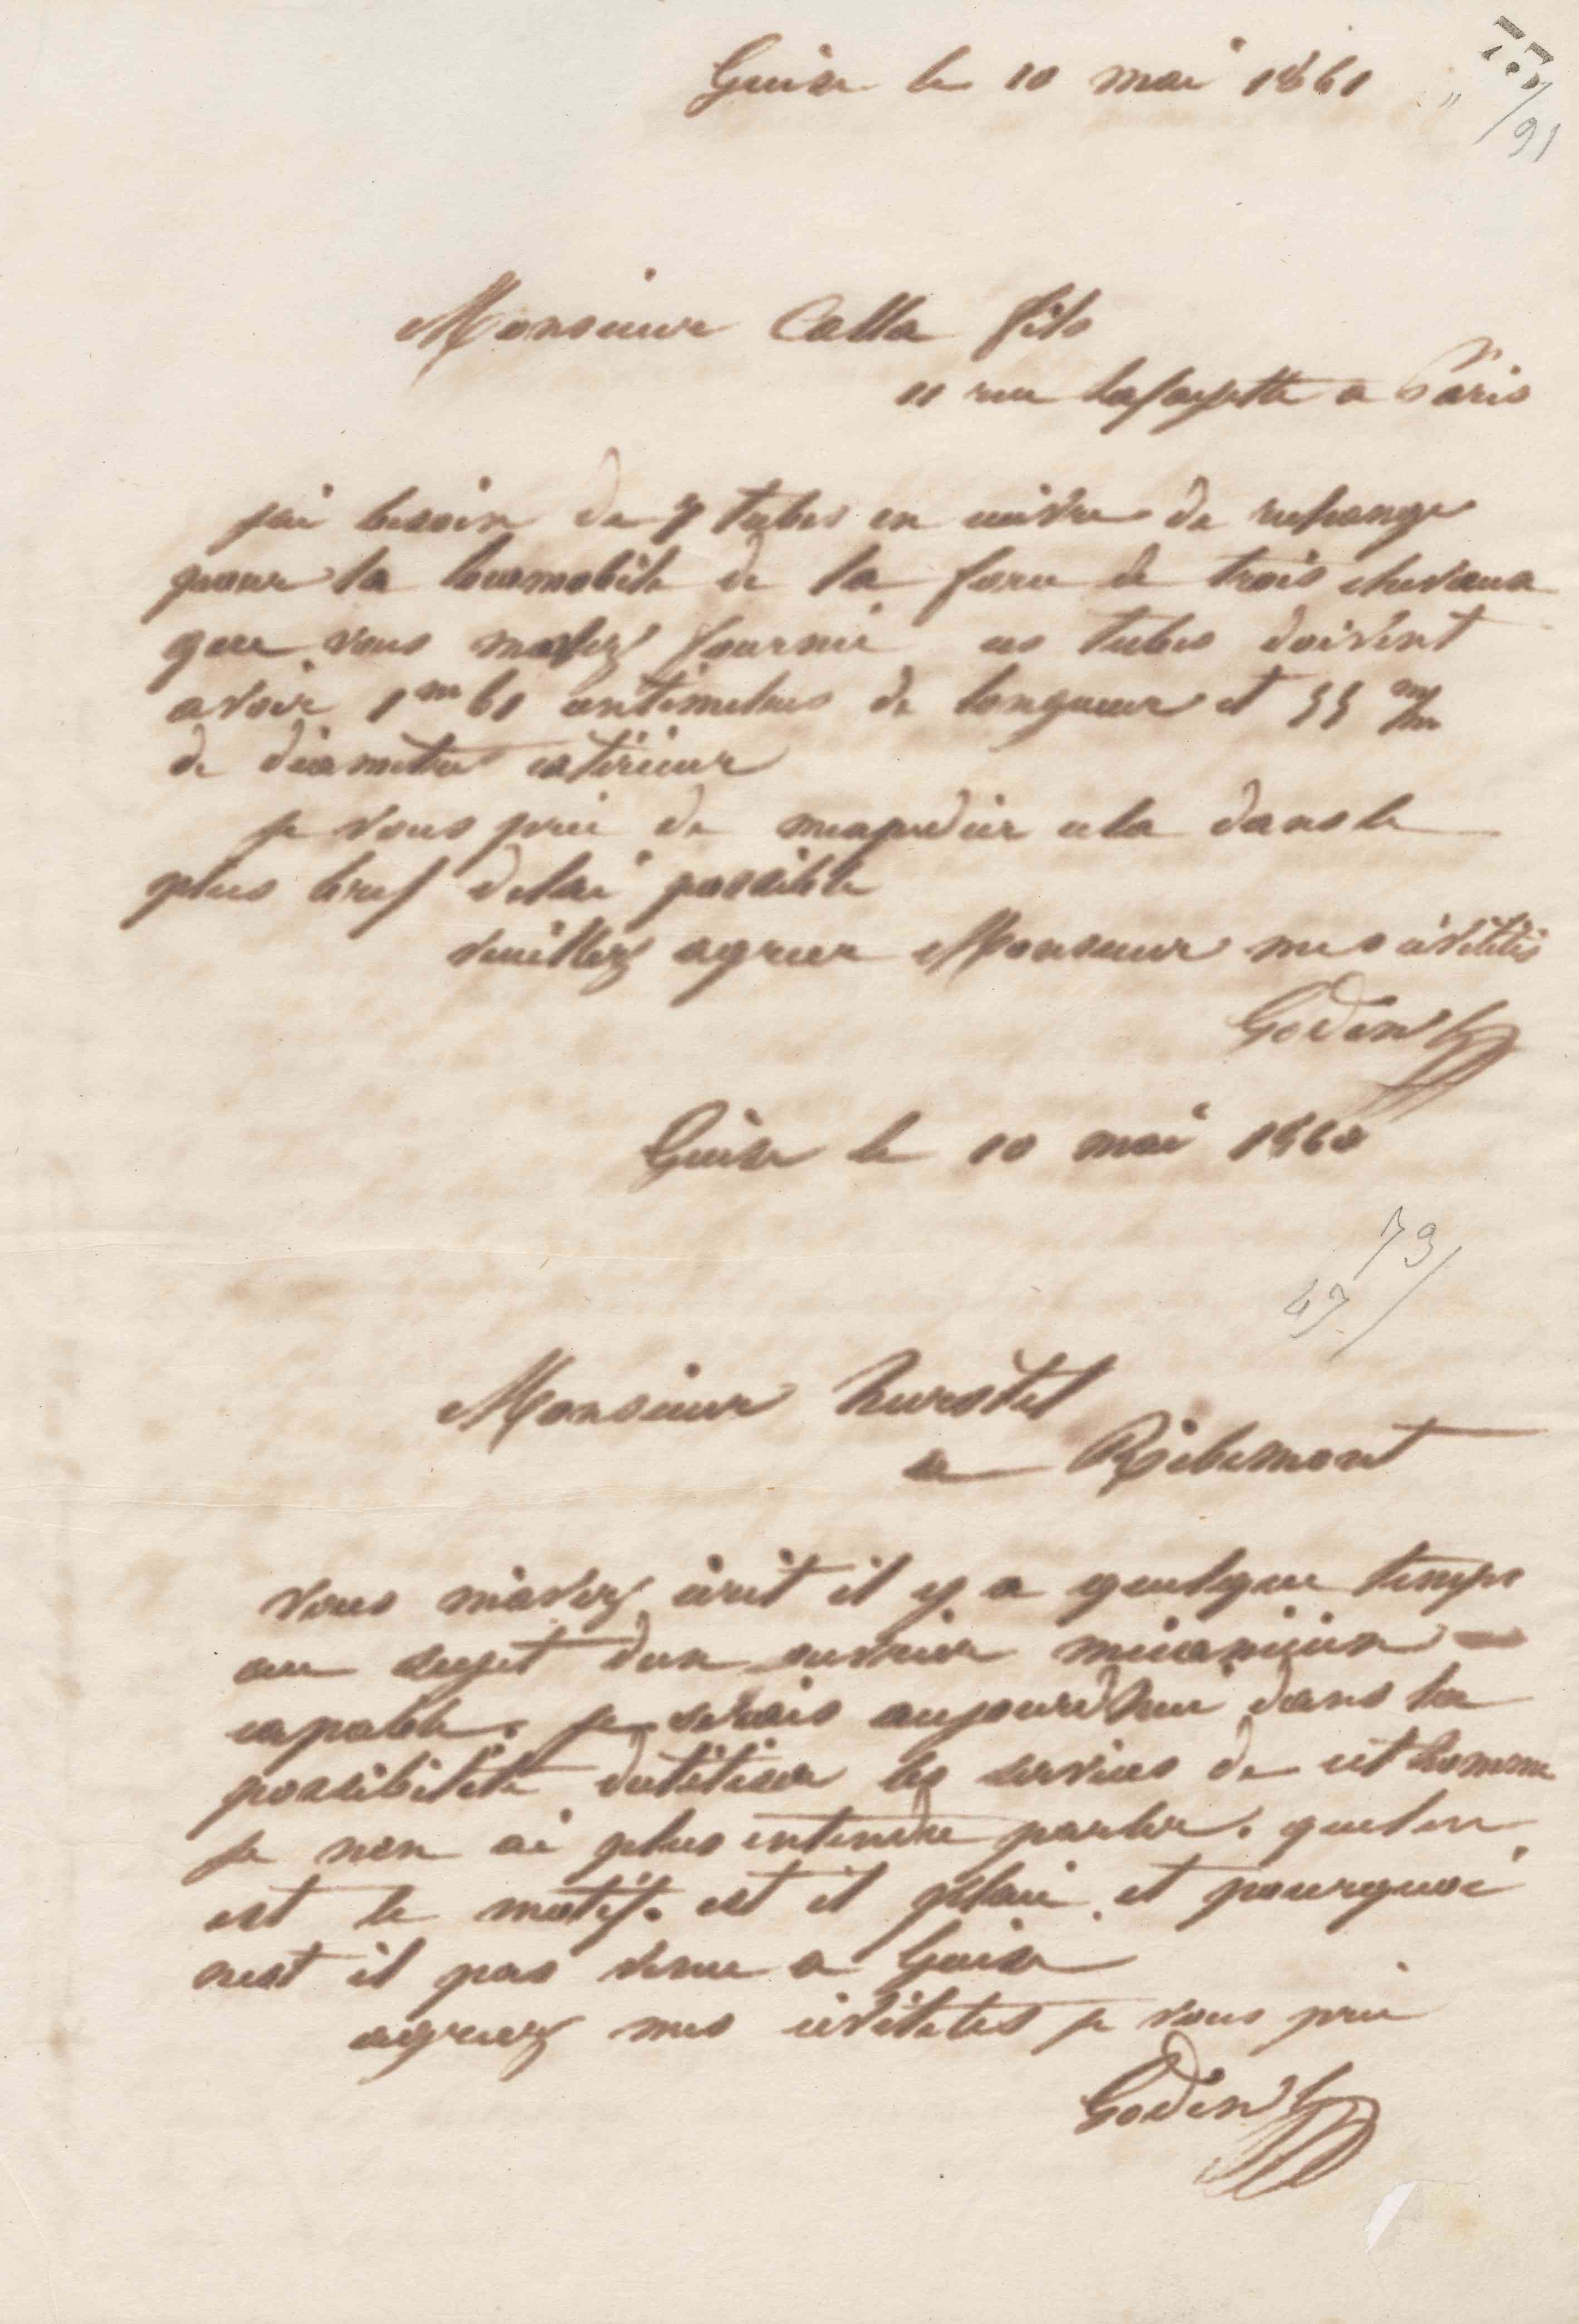 Guise le 10 mai 1861
91
Monsieur Calla fils
11 rue Lafayette a Paris
jai besoin de 7 tubes en cuivre de rechange
pour la locomobile de la force de trois chevaux
que vous mavez fournie ces tubes doivent
avoir 1m 61 centimetres de longueur et 55 m/m
de diametre exterieur
je vous prie de mexpedier cela dans le
plus bref delai possible
veuillez agreer Monsieur mes civilités
Godin
Guise le 10 mai 1860
79
47
Monsieur
a Ribemont
vous m'avez écrit il y a quelque temps
au sujet dun ouvrier mécanicien
capable. je serais aujourdhui dans la
possibilité dutiliser les services de cet homme
je nen ai plus entendu parler. quel en
est le motif. est il placé et pourquoi
nest il pas venu a Guise
agreez mes civilités je vous prie
Godin